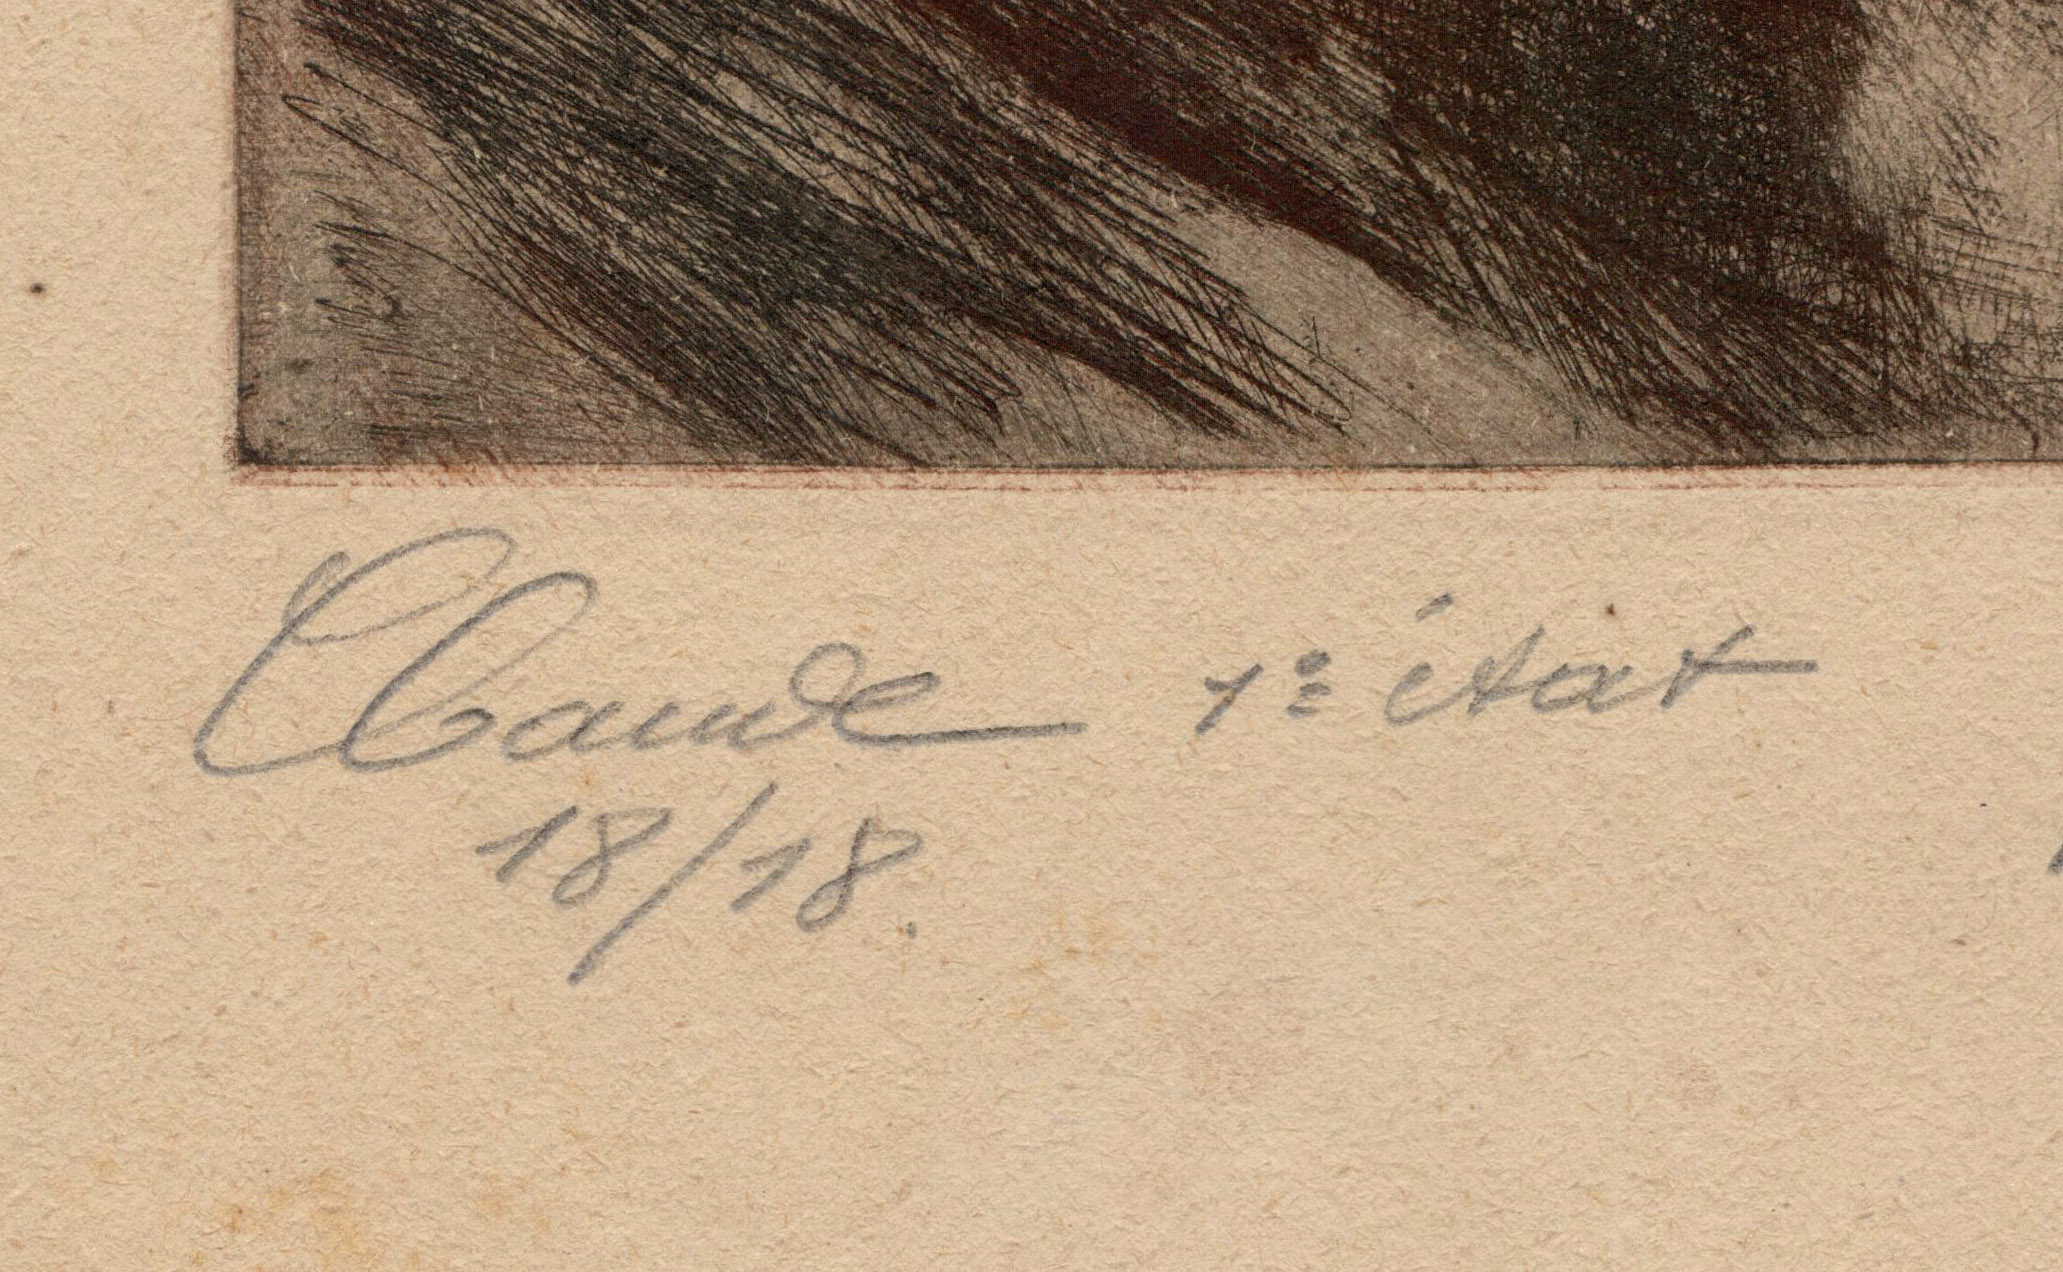 Claude 1e état
18/18.